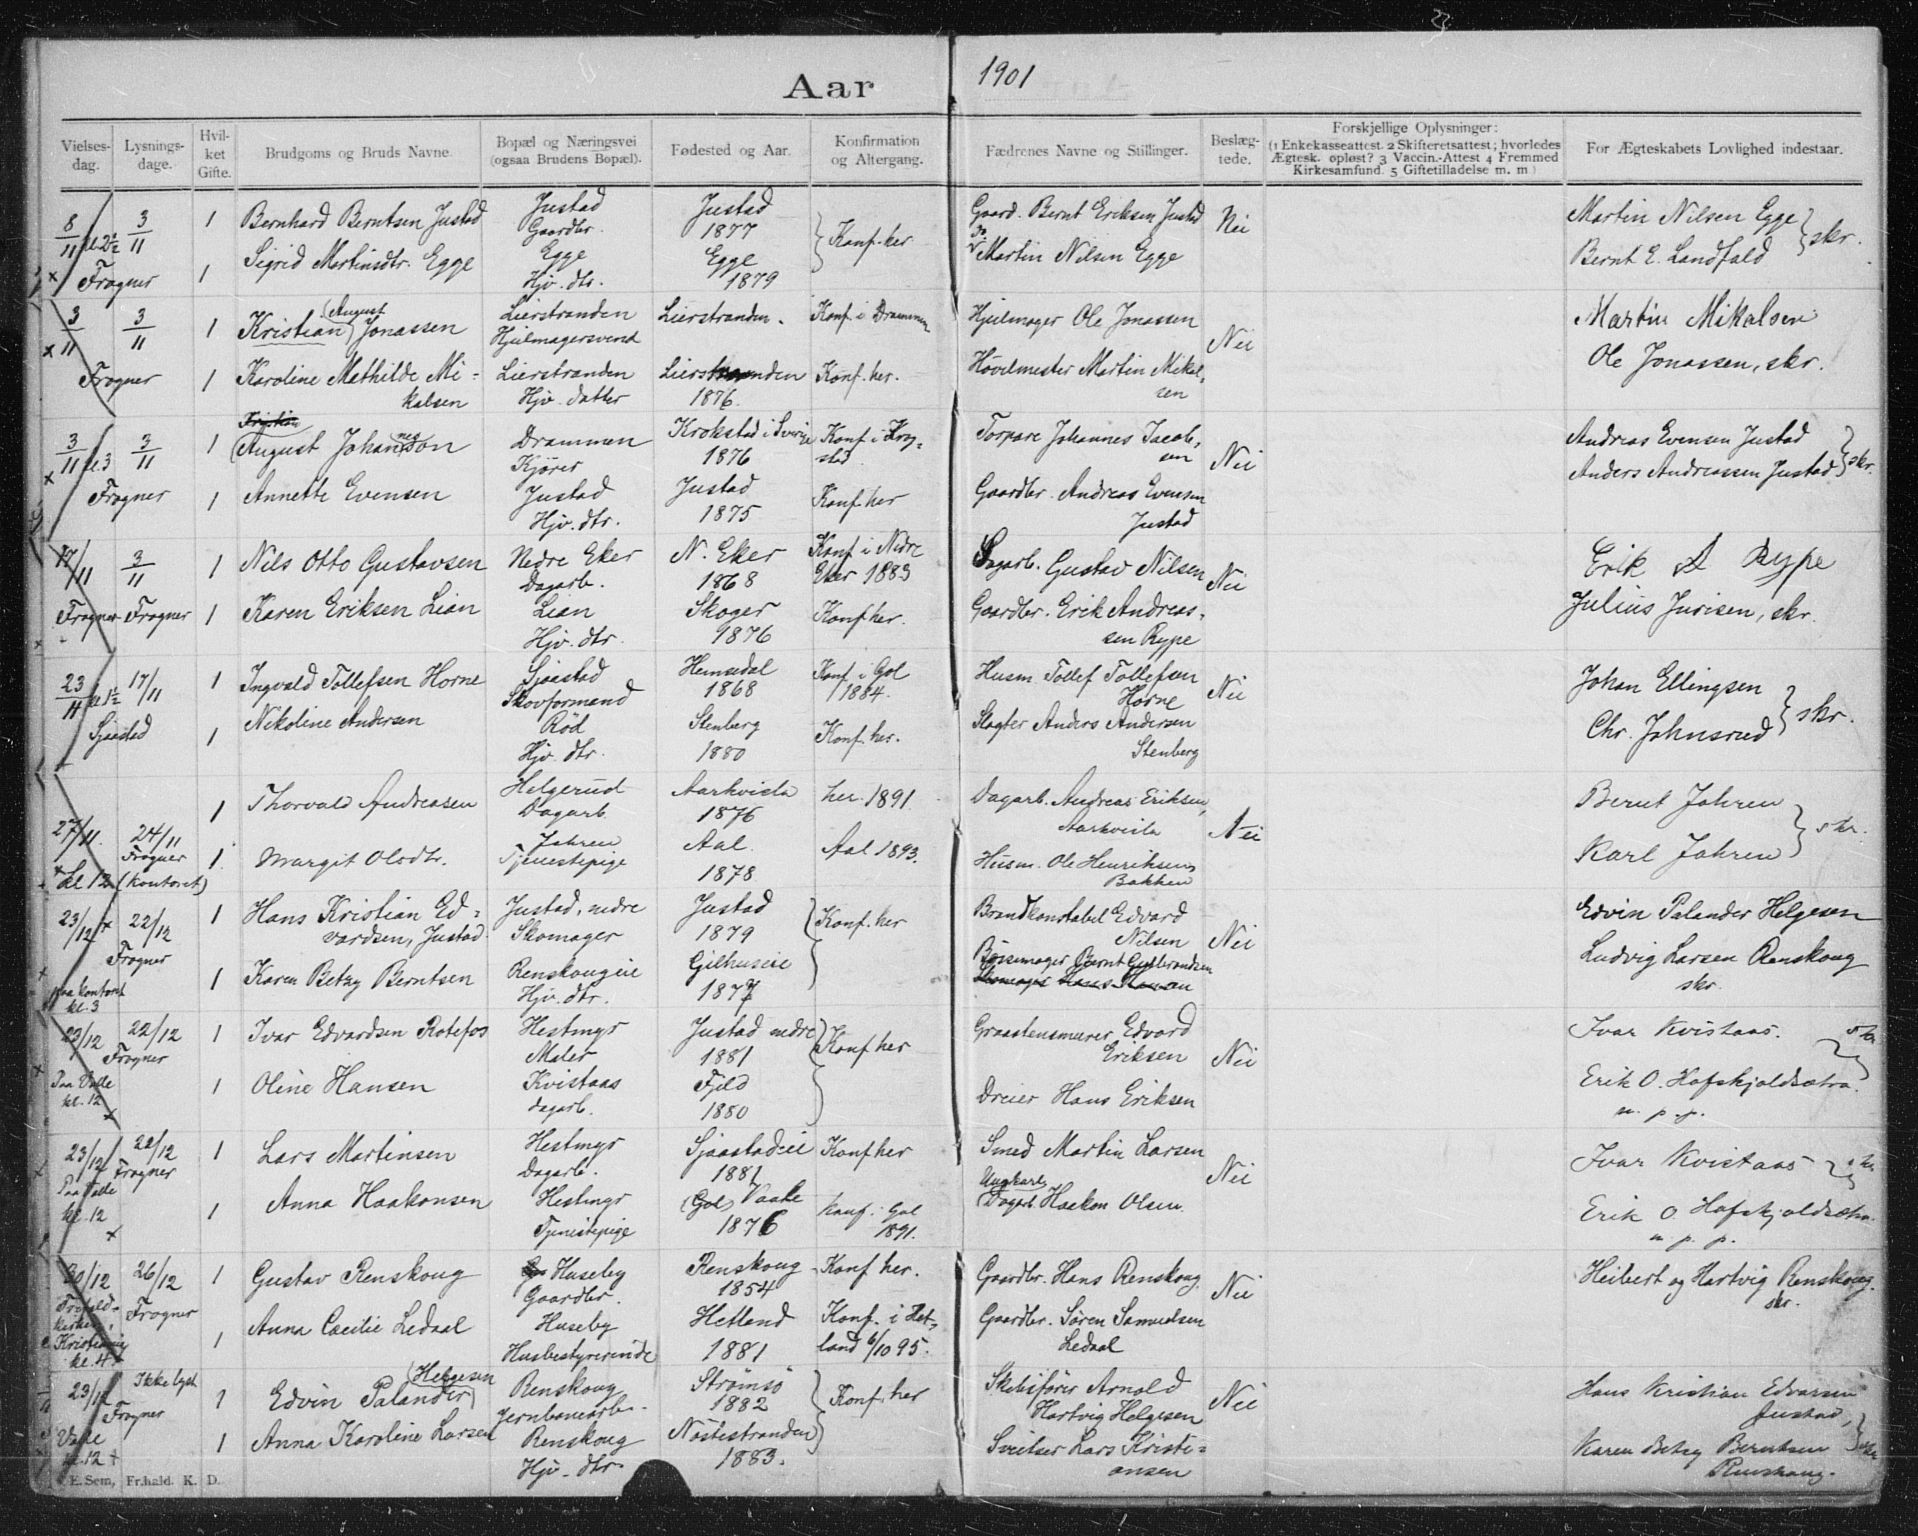 Aar 1901
Vielses-dag. Lysnings-dage. Hvil-ket Gifte. Brudgoms og Bruds Navne. Bopæl og Næringsvei (ogsaa Brudens Bopæl). Fødested og Aar. Konfirmation og Altergang. Fædrenes Navne og Stillinger. Beslæg-tede. Forskjellige Oplysninger: (1 Enkekasseattest. 2 Skifteretsattest; hvorledes Ægtesk. opløst? 3 Vaccin.-Attest 4 Fremmed Kirkesamfund. 5 Giftetilladelse m. m) For Ægteskabets Lovlighed indestaar.
8/11 kl. 2½ 3/11 1 Bernhard Berntsen Justad Justad Gaardbr. Justad 1877 Konf. her Gaard. Bernt Eriksen Justad Nei Martin Nilsen Egge
Frogner 1 Sigrid Martinsdtr. Egge Egge Hjv. dtr. Egge 1879 Martin Nilsen Egge Bernt E. Landfald skr.
3/11 3/11 1 Kristian (August) Jonassen Lierstranden Hjulmagersvend Lierstranden. Konf. i Drammen Hjulmager Ole Jonassen Nei Martin Mikalsen
Frogner 1 Karoline Mathilde Mi-kalsen Lierstranden Hjv. datter Lierstranden 1876. Konf. her. Høvelmester Martin Mikal-sen Ole Jonassen, skr.
3/11 kl. 3 3/11 1 August Johan Drammen Kjører Krokstad i Sverige 1876 Konf. i Krog-stad Torpare Johannes Jacob-sen Nei Andreas Evensen Justad
Frogner 1 Annette Evensen Justad Hjv. dtr. Justad 1875 Konf. her Gaardbr. Andreas Evensen Justad Anders Andreassen Justad skr.
17/11 3/11 1 Nils Otto Gustavsen Nedre Eker Dagarb. N. Eker 1868 Konf. i Nedre Eker 1883 Dagarb. Gustav Nilsen Nei Erik A Rype
Frogner Frogner 1 Karen Eriksen Lian Lian Hjv. dtr. Skoger 1876 Konf her. Gaardbr. Erik Andreas-sen Rype Julius Jurisen, skr.
23/11 kl. 1½ 17/11 1 Ingvald Tollefsen Horne Sjaastad Skovformand Hemsedal 1868 Konf. i Gol 1884. Husm. Tollef Tollefsen Horne Nei Johan Ellingsen
Sjaastad 1 Nikoline Andersen Rød Hjv. dtr. Stenberg 1880 Konf. her. Slagter Anders Andersen Stenberg Chr. Johnsrud skr.
27/11. 24/11 Frogner 1 Thorvald Andreasen Helgerud Dagarb. Aarkvisla 1876 her. 1891 Dagarb. Andreas Eriksen, Aarkvisla Nei Bernt Jahren
kl 12 (kontoret) 1 Margit Olsdtr. Jahren Tjenestepige Aal. 1878 Aal 1893. Husm. Ole Henriksen, Bakken Karl Jahren skr.
23/12 22/12 Frogner 1 Hans Kristian Ed-vardsen, Justad Justad, nedre Skomager Justad 1879 Konf. her Brandkonstabel Edvard Nilsen Nei Edvin Palander Helgesen
paa kontoret kl. 3 1 Karen Betzy Berntsen Renskougeie Hjv. dtr. Gjelhuseie 1877 Børsemager Bernt Gulbrandsen Ludvig Larsen Renskoug skr.
23/12 22/12 Frogner 1 Ivar Edvardsen Rotefos Hestmyr Maler Justad nedre 1881 Konf her Graastensmurer Edvard Eriksen Nei Ivar Kvistaas. skr
Paa Valle kl. 12 1 Oline Hansen Kvistaas dagarb. Fjeld 1880 Dreier Hans Eriksen Erik O. Hofskjoldsætra. m. p. p.
23/12 22/12 Frogner 1 Lars Martinsen Hestmyr Dagarb. Sjaastadeie 1881 Konf her Smed Martin Larsen Nei Ivar Kvistaas skr
Paa Valle kl. 12 1 Anna Haakonsen Hestmyr Tjenestepige (Gol) Vaale 1876 Konf. i Gol 1891. Ungkarl Dagarb. Haakon Olsen Erik O. Hofskjoldsætra. m. p. p.
30/12 26/12 Frogner 1 Gustav Renskoug Huseby Gaardbr. Renskoug 1854 Konf her. Gaardbr. Hans Renskoug. Nei Heibert og Hartvig Renskoug. skr.
Trefold-kirken, Kristiania kl. 4 1 Anna Cecilie Ledaal Huseby Husbestyrerinde Hetland 1881 Konf. i Het-land 6/10 95. Gaardbr. Søren Samuelsen Ledaal
23/12 Ikke lyst Frogner 1 Edvin Palander (Helgesen) Renskoug Jernbanearb. Strømsø 1882 Konf. her Skibsfører Arnold Hartvig Helgesen Nei Hans Kristian Edvarsen Justad,
Valle kl. 12 1 Anna Karoline Larsen Renskoug Hjv. dtr Nøstestranden 1883. Sveitser Lars Kristi-ansen Karen Betzy Berntsen Renskoug. skr
E. Sem, Fr.hald. K. D.